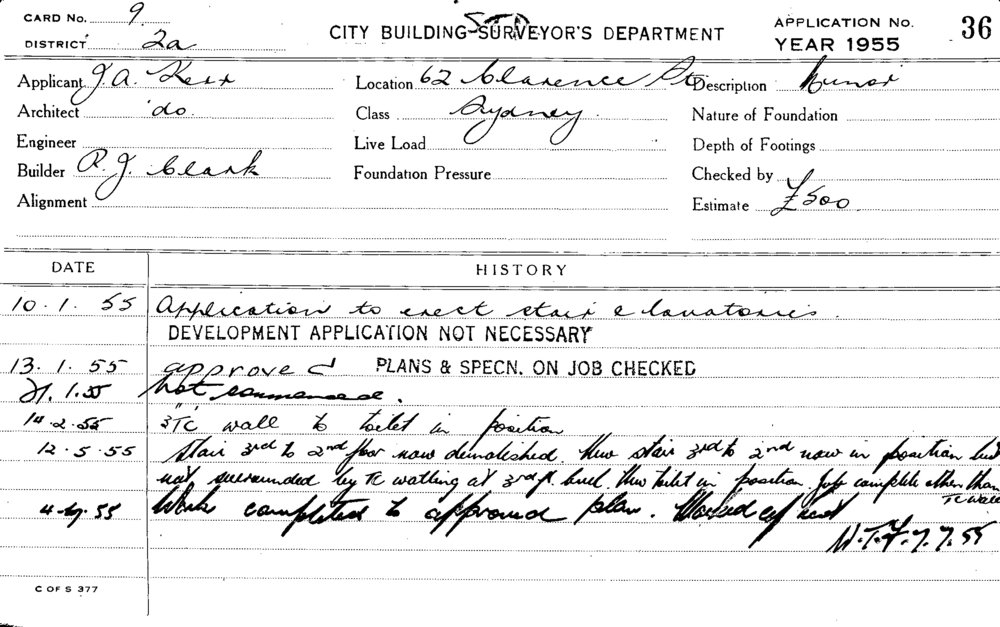 CARD No. 9
DISTRICT 2a
CITY BUILDING SURVEYOR'S DEPARTMENT
APPLICATION No. 36
YEAR 1955
Applicant J. A. Kerr
Location 62 Clarence St
Description Minor
Architect do.
Class Sydney
Nature of Foundation
Engineer
Live Load
Depth of Footings
Builder R. J. Clark
Foundation Pressure
Checked by
Alignment
Estimate £500
DATE HISTORY
10. 1. 55 Application to erect stair & lavatories.
DEVELOPMENT APPLICATION NOT NECESSARY
13. 1. 55 approved PLANS & SPECN. ON JOB CHECKED
21. 1. 55 Not commenced.
14. 2. 55 3" TC wall to toilet in position
12. 5. 55 Stair 3rd to 2nd floor now demolished. New stair 3rd to 2nd now in position but
not surrounded by TC walling at 3rd fl. level. New toilet in position. Job complete other than
TC wall
55 Work completed to approved plan.
W. T. 7. 7. 55
C OF S 377